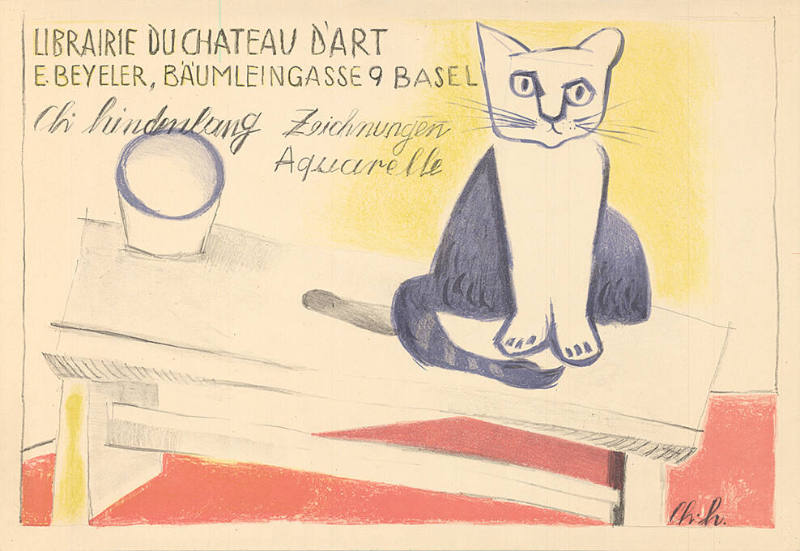 LIBRAIRIE DU CHATEAU D'ART
E. BEYELER, BÄUMLEINGASSE 9 BASEL
Ch hindenlang Zeichnungen
Aquarelle
Ch. h.